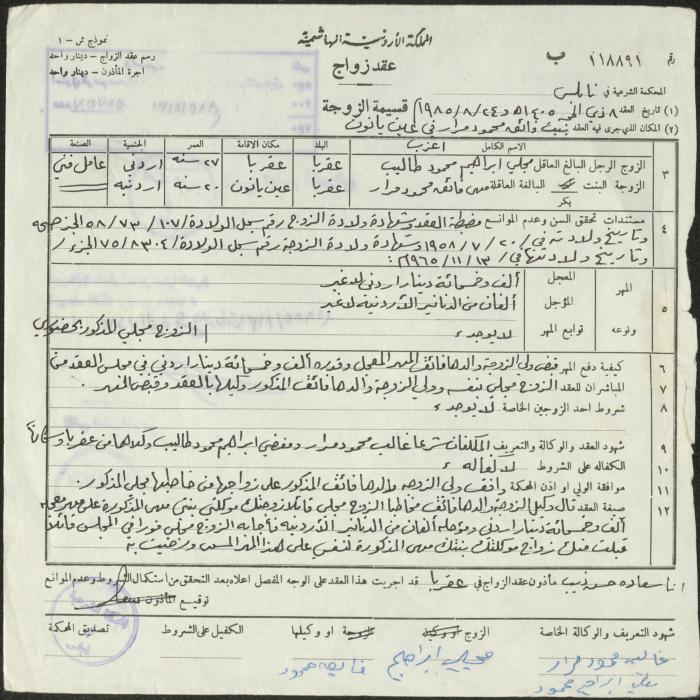 المملكة الأردنية الهاشمية
نموذج ش - ١
رقم ١١٨٨٩١ ب
عقد زواج
رسم عقد الزواج - دينار واحد
اجرة المأذون - دينار واحد
المحكمة الشرعية في نابلس
(١) تاريخ العقد ٨ ذي الحجة ١٤٠٥ هـ و ٢٤/٨/١٩٨٥ م قسيمة الزوجة
(٢) المكان الذي جرى فيه العقد بيت والد فائق محمود مرار في عين يانون
الاسم الكامل البلد مكان الاقامة العمر الجنسية الصنعة
٣ الزوج الرجل البالغ العاقل مجلي ابراهيم محمود طالب عقربا عقربا ٢٧ سنة اردني عامل فني
اعزب
الزوجة البنت البالغة العاقلة فائق محمود مرار عقربا عين يانون ٢٠ سنة اردنية
بكر
٤ مستندات تحقق السن وعدم الموانع مضبطة العقد وشهادة ولادة الزوج رقم سجل الولادة ١٠٧/٧٣/٥٨ الجزء صفحة
وتاريخ ولادته في ٢٠/٧/١٩٥٨ وشهادة ولادة الزوجة رقم سجل الولادة ٨٣٠٤/٧٥ الجزء /
وتاريخ ولادتها في ١٣/١١/١٩٦٥ م
٥ المهر المعجل ألف وخمسمائة دينار اردني لا غير
المؤجل ألفان من الدنانير الأردنية لا غير
ونوعه توابع المهر لا يوجد الزوج مجلي المذكور بحضوري
٦ كيفية دفع المهر قبض ولي الزوجة والدها فائق المهر المعجل وقدره ألف وخمسمائة دينار اردني في مجلس العقد من
٧ المباشران للعقد الزوج مجلي بنفسه وولي الزوجة والدها فائق المذكور وكيلها بالعقد وقبض المهر
٨ شروط احد الزوجين الخاصة لا يوجد
٩ شهود العقد والوكالة والتعريف المكلفان شرعا غالب محمود مرار و ابراهيم محمود طالب وكلاهما من عقربا وسكانها
١٠ الكفالة على الشروط لا كفالة
١١ موافقة الولي او اذن المحكمة وافق ولي الزوجة والدها فائق المذكور على زواجها من خاطبها مجلي المذكور
١٢ صيغة العقد قال وكيل الزوجة والدها فائق مخاطبا الزوج مجلي قائلا زوجتك موكلتي بنتي المذكورة على مهر معجله
ألف وخمسمائة دينار اردني ومؤجله ألفان من الدنانير الأردنية فأجابه الزوج مجلي فورا في المجلس قائلا
قبلت منك زواج موكلتك بنتك المذكورة لنفسي على هذا المهر المسمى ورضيت به
انا سعاده حسن ذيب مأذون عقد الزواج في عقربا قد اجريت هذا العقد على الوجه المفصل اعلاه بعد التحقق من استكمال الشروط وعدم الموانع
توقيع المأذون
شهود التعريف والوكالة الخاصة الزوج او وكيله الزوجة او وكيلها الكفيل على الشروط تصديق المحكمة
غالب محمود مرار مجلي ابراهيم فايق محمود
ابراهيم محمود